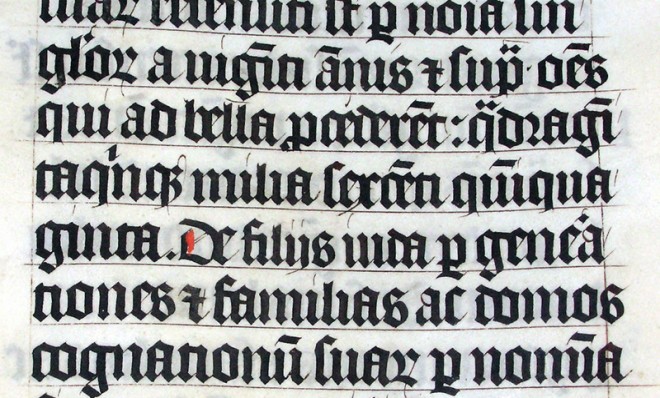 suaꝝ recensiti st̄ ꝑ noīa sin
gloꝝ a uigīti ānis ⁊ supͣ oēs
qui ad bella ꝓcederēt: qͣdragī
taqͥnqꝫ milia sexcēti quīqua
ginta. De filijs iuda ꝑ geneͣ
tiones ⁊ familias ac domos
cognationū suaꝝ ꝑ nomīa